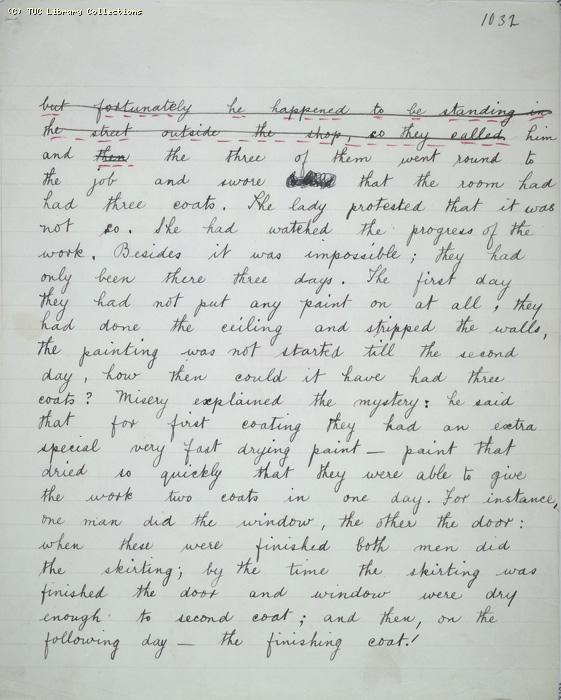 (C) TUC Library Collections
1032
but fortunately he happened to be standing in
the street outside the shop, so they called him
and then the three of them went round to
the job and swore that the room had
had three coats. The lady protested that it was
not so. She had watched the progress of the
work. Besides it was impossible; they had
only been there three days. The first day
they had not put any paint on at all; they
had done the ceiling and stripped the walls,
the painting was not started till the second
day, how then could it have had three
coats? Misery explained the mystery: he said
that for first coating they had an extra
special very fast drying paint — paint that
dried so quickly that they were able to give
the work two coats in one day. For instance,
one man did the window, the other the door:
when these were finished both men did
the skirting; by the time the skirting was
finished the door and window were dry
enough to second coat; and then, on the
following day — the finishing coat!